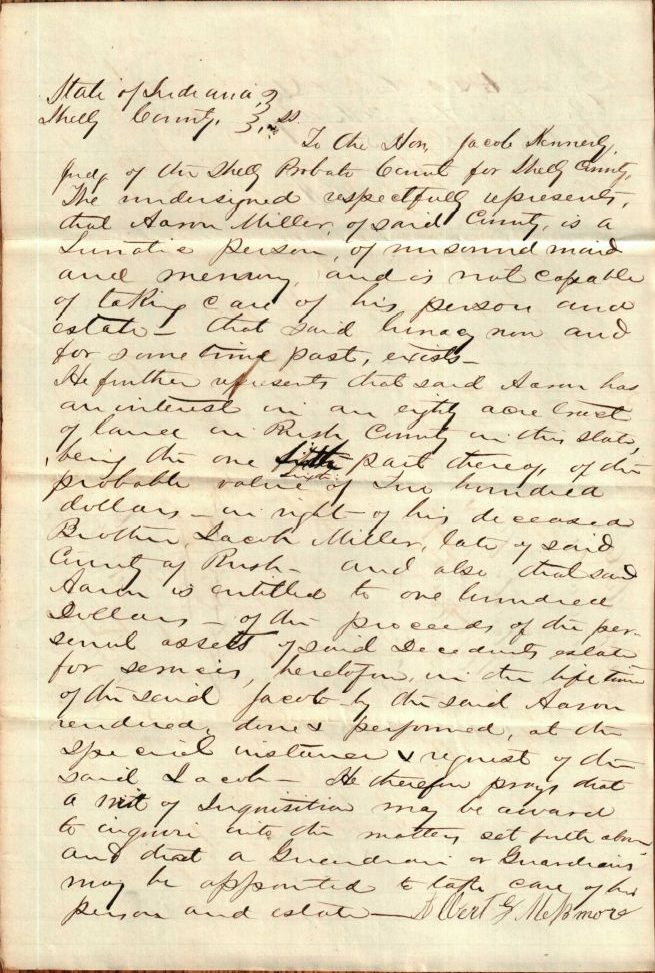 State of Indiana, }
Shelby County, } ss
To the Hon. Jacob Kennerly,
Judg of the Shelby Probate Court for Shelby County,
The undersigned respectfully represents,
that Aaron Miller, of said County, is a
Lunatic person, of unsound mind
and memory, and is not capable
of taking care of his person and
estate – that said lunacy now and
for some time past, exists –
He further represents that said Aaron has
an interest in an eighty acre tract
of land in Rush County in this state,
being the one sixth part thereof, of the
probable value of Two hundred
dollars – in right of his deceased
Brother Jacob Miller, late of said
County of Rush – and also that said
Aaron is entitled to one hundred
Dollars – of the proceeds of the per-
sonal assets of said Decedents estate
for services, heretofore, in the life time
of the said Jacob – by the said Aaron
rendered, done & performed, at the
special instance & request of the
said Jacob – He therefore prays that
a writ of Inquisition may be award
to inquire into the matters set forth above
and that a Guardian or Guardians
may be appointed to take care of his
person and estate – Albert G